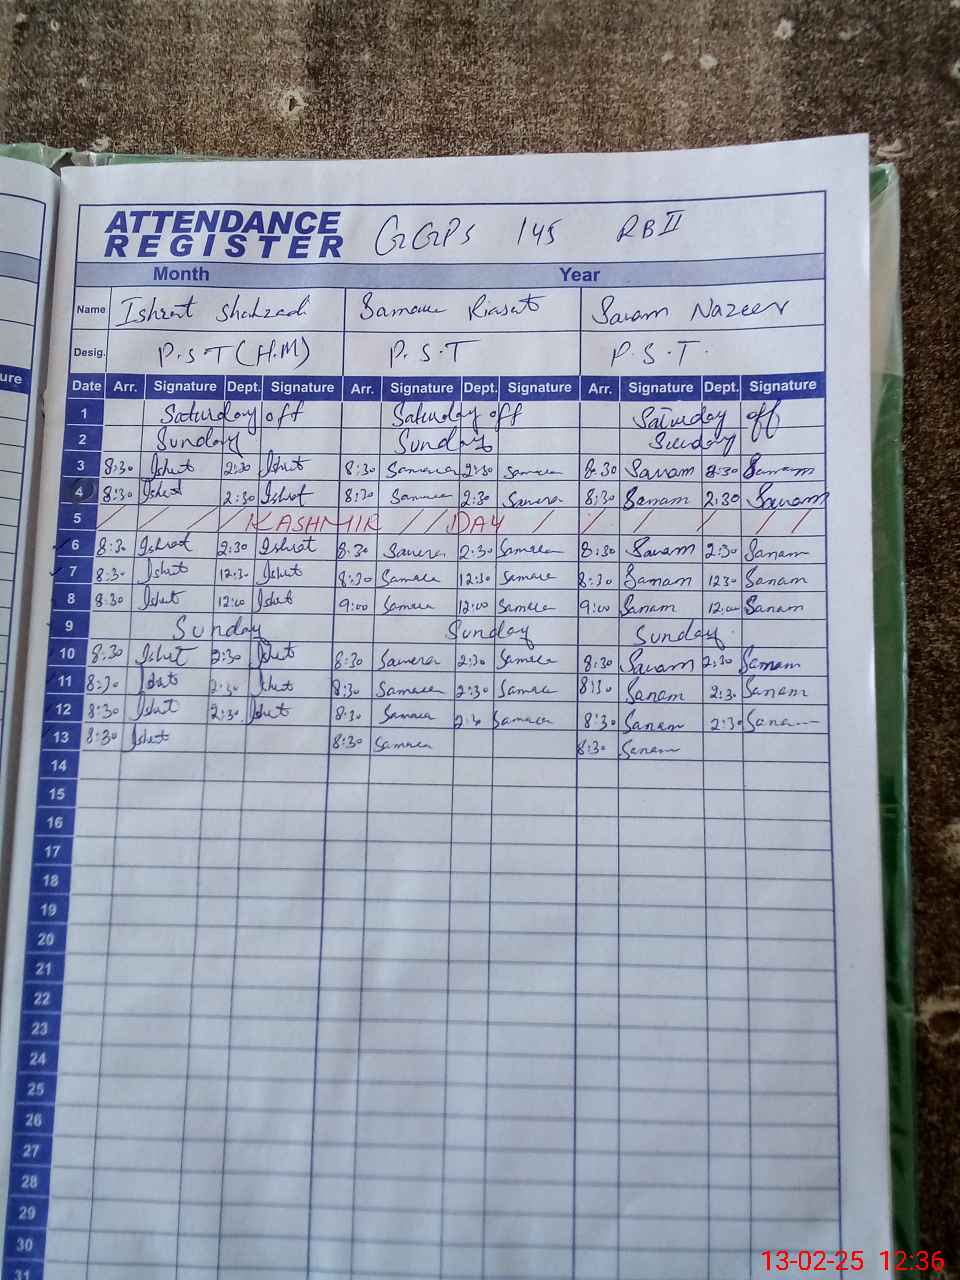 ATTENDANCE REGISTER GGPS 145 RB II
Month Year
Name Ishrat Shahzadi Samara Riasat Sanam Nazeer
Desig. P.S.T (H.M) P.S.T P.S.T.
ure Date Arr. Signature Dept. Signature Arr. Signature Dept. Signature Arr. Signature Dept. Signature
1 Saturday off Saturday off Saturday off
2 Sunday Sunday Sunday
3 8:30 Ishrat 2:30 Ishrat 8:30 Samara 2:30 Samara 8:30 Sanam 2:30 Sanam
4 8:30 Ishrat 2:30 Ishrat 8:30 Samara 2:30 Samara 8:30 Sanam 2:30 Sanam
5 KASHMIR DAY
6 8:30 Ishrat 2:30 Ishrat 8:30 Samara 2:30 Samara 8:30 Sanam 2:30 Sanam
7 8:30 Ishrat 12:30 Ishrat 8:30 Samara 12:30 Samara 8:30 Sanam 1230 Sanam
8 8:30 Ishrat 12:00 Ishrat 9:00 Samara 12:00 Samara 9:00 Sanam 12:00 Sanam
9 Sunday Sunday Sunday
10 8:30 Ishrat 2:30 Ishrat 8:30 Samara 2:30 Samara 8:30 Sanam 2:30 Sanam
11 8:30 Ishrat 2:30 Ishrat 8:30 Samara 2:30 Samara 8:30 Sanam 2:30 Sanam
12 8:30 Ishrat 2:30 Ishrat 8:30 Samara 2:30 Samara 8:30 Sanam 2:30 Sanam
13 8:30 Ishrat 8:30 Samara 8:30 Sanam
14
15
16
17
18
19
20
21
22
23
24
25
26
27
28
29
30
31
13-02-25 12:36